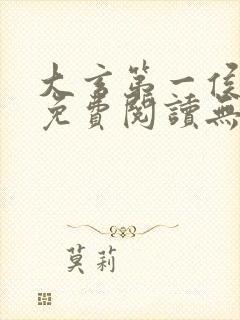 大玄第一侯
免費閱讀無
莫莉